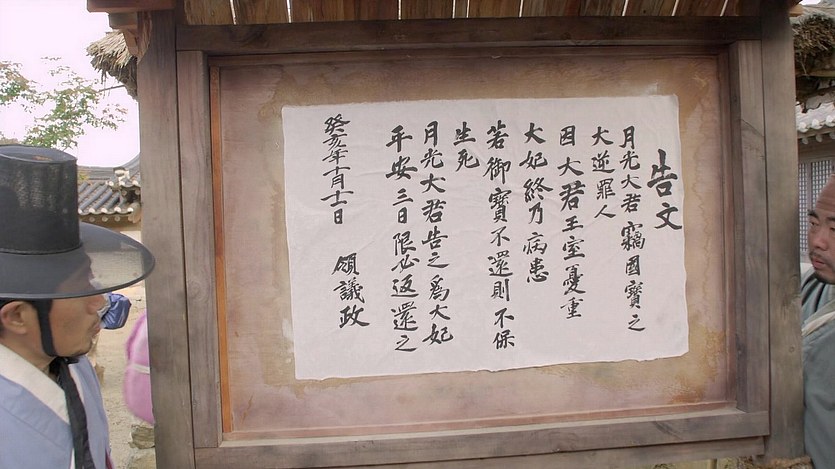 告文
月光大君 竊國寶之
大逆罪人
因大君王室憂重
大妃終乃病患
若御寶不還則不保
生死
月光大君告之爲大妃
平安三日限必返還之
癸亥年十月十一日 領議政